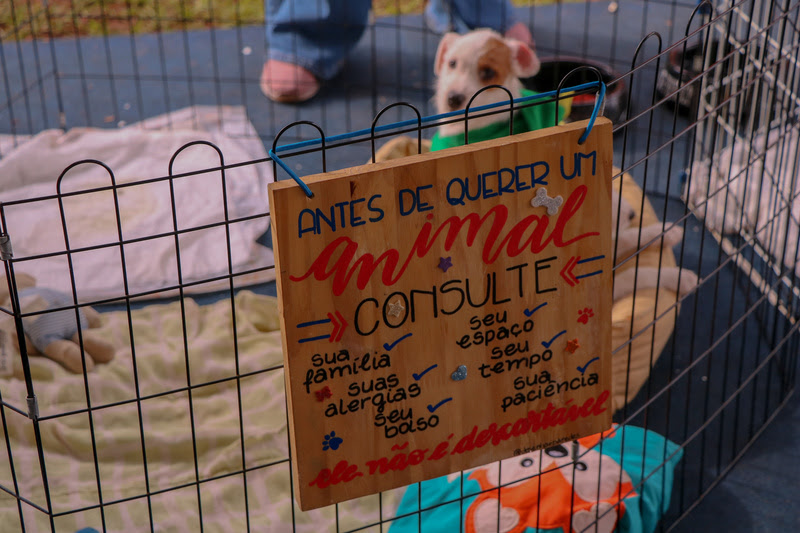 ANTES DE QUERER UM
animal
CONSULTE
sua
família
suas
alergias
seu
bolso
seu
espaço
seu
tempo
sua
paciência
ele não é descartável